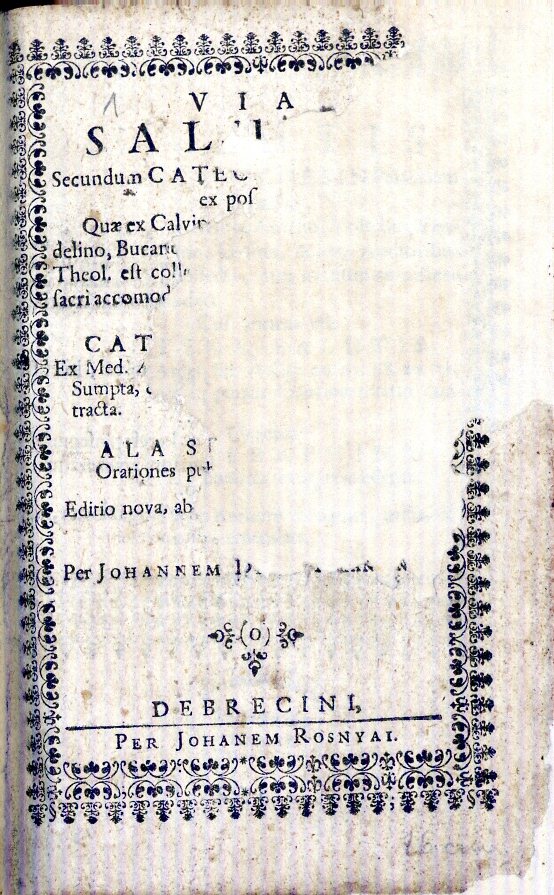 1
VIA
SAL
Secundum CATEC
ex pos
Quæ ex Calvin
delino, Bucan
Theol. est coll
sacri accomod
CAT
Ex Med.
Sumpta,
tracta.
ALA S
Orationes pu
Editio nova, ab
Per JOHANNEM
(0)
DEBRECINI,
PER JOHANEM ROSNYAI.